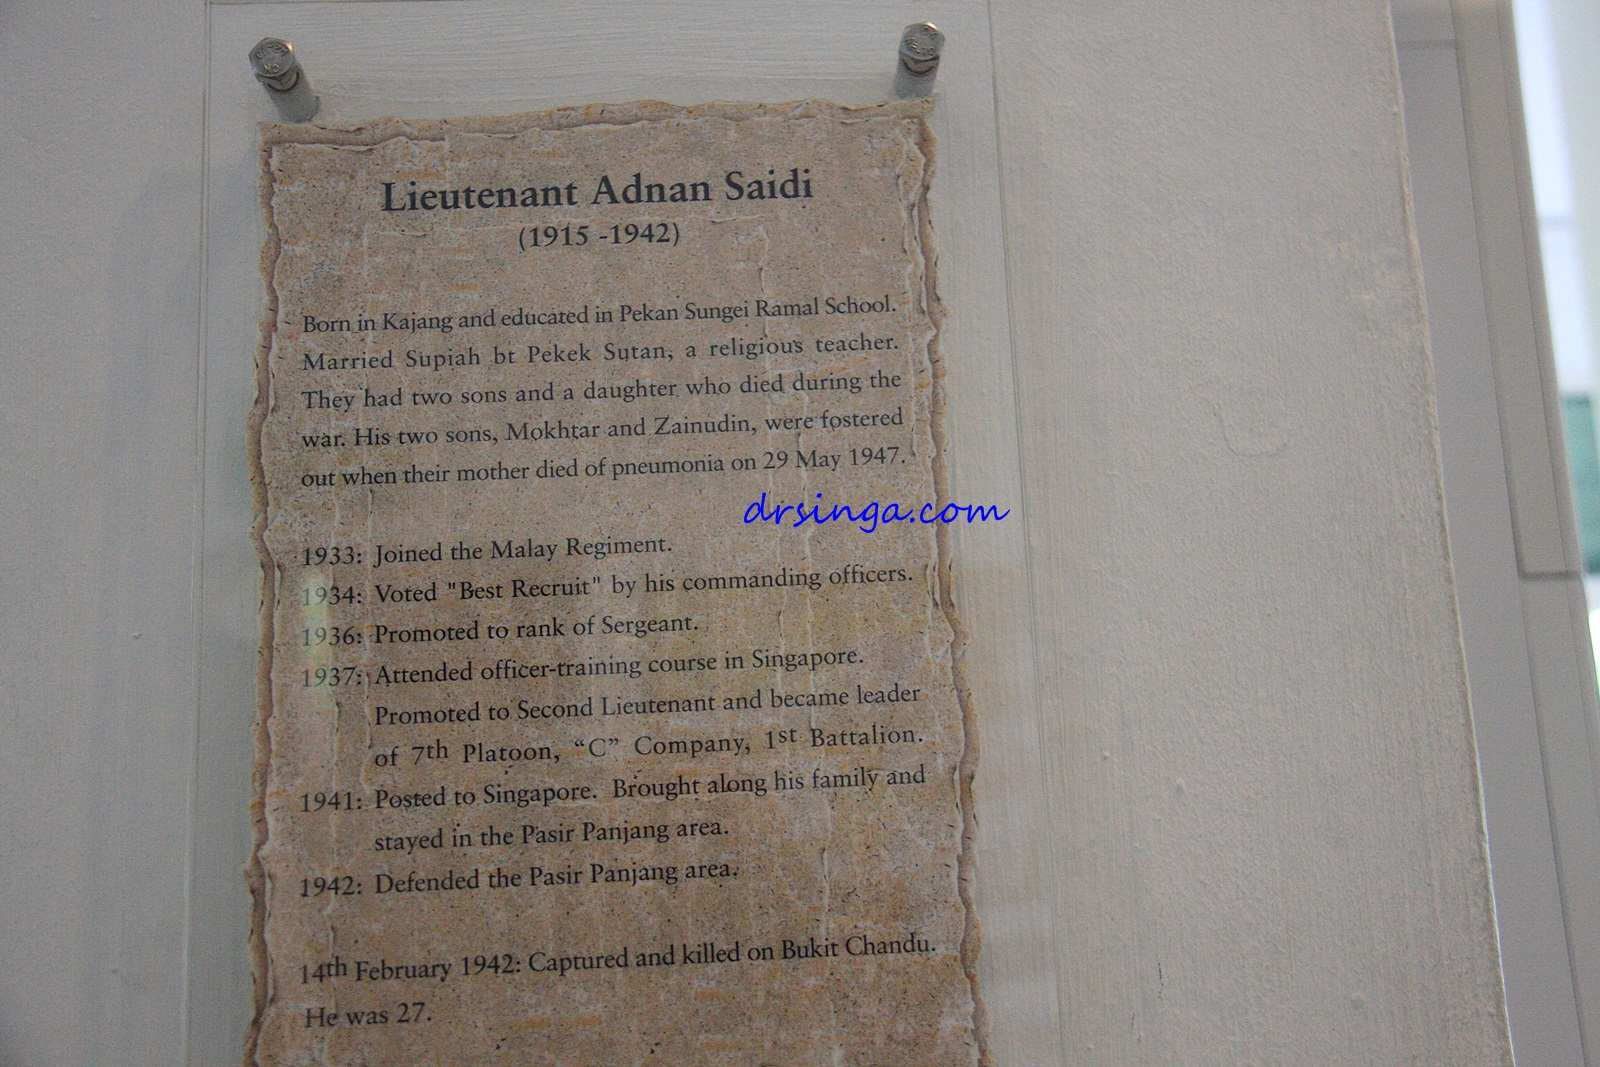 Lieutenant Adnan Saidi
(1915 -1942)
Born in Kajang and educated in Pekan Sungei Ramal School.
Married Supiah bt Pekek Sutan, a religious teacher.
They had two sons and a daughter who died during the
war. His two sons, Mokhtar and Zainudin, were fostered
out when their mother died of pneumonia on 29 May 1947.
drsinga.com
1933: Joined the Malay Regiment.
1934: Voted "Best Recruit" by his commanding officers.
1936: Promoted to rank of Sergeant.
1937: Attended officer-training course in Singapore.
Promoted to Second Lieutenant and became leader
of 7th Platoon, “C” Company, 1st Battalion.
1941: Posted to Singapore. Brought along his family and
stayed in the Pasir Panjang area.
1942: Defended the Pasir Panjang area.
14th February 1942: Captured and killed on Bukit Chandu.
He was 27.